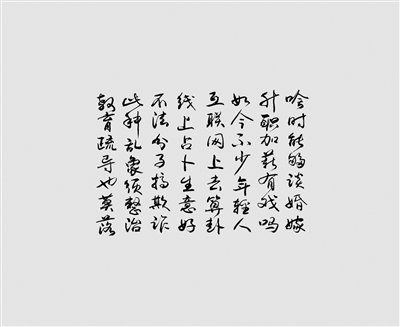 啥时能够谈婚嫁
升职加薪有戏吗
如今不少年轻人
互联网上去算卦
线上占卜生意好
不法分子搞欺诈
此种乱象须整治
教育疏导也莫落